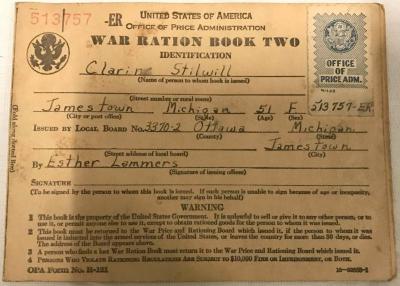 513757 -ER UNITED STATES OF AMERICA
OFFICE OF PRICE ADMINISTRATION
WAR RATION BOOK TWO
IDENTIFICATION
OFFICE
OF
PRICE ADM.
Clarin Stilwill
(Name of person to whom book is issued)
(Street number or rural route)
Jamestown Michigan 51 F 513757-ER
(City or post office) (State) (Age) (Sex)
ISSUED BY LOCAL BOARD No. 3370-2 Ottawa Michigan
(County) (State)
Jamestown
(Street address of local board) (City)
By Esther Lammers
(Signature of issuing officer)
SIGNATURE
(To be signed by the person to whom this book is issued. If such person is unable to sign because of age or incapacity, another may sign in his behalf)
WARNING
1 This book is the property of the United States Government. It is unlawful to sell or give it to any other person, or to
use it, or permit anyone else to use it, except to obtain rationed goods for the person to whom it was issued.
2 This book must be returned to the War Price and Rationing Board which issued it, if the person to whom it was
issued is inducted into the armed services of the United States, or leaves the country for more than 30 days, or dies.
The address of the Board appears above.
3 A person who finds a lost War Ration Book must return it to the War Price and Rationing Board which issued it.
4 PERSONS WHO VIOLATE RATIONING REGULATIONS ARE SUBJECT TO $10,000 FINE OR IMPRISONMENT, OR BOTH.
OPA Form No. R-121